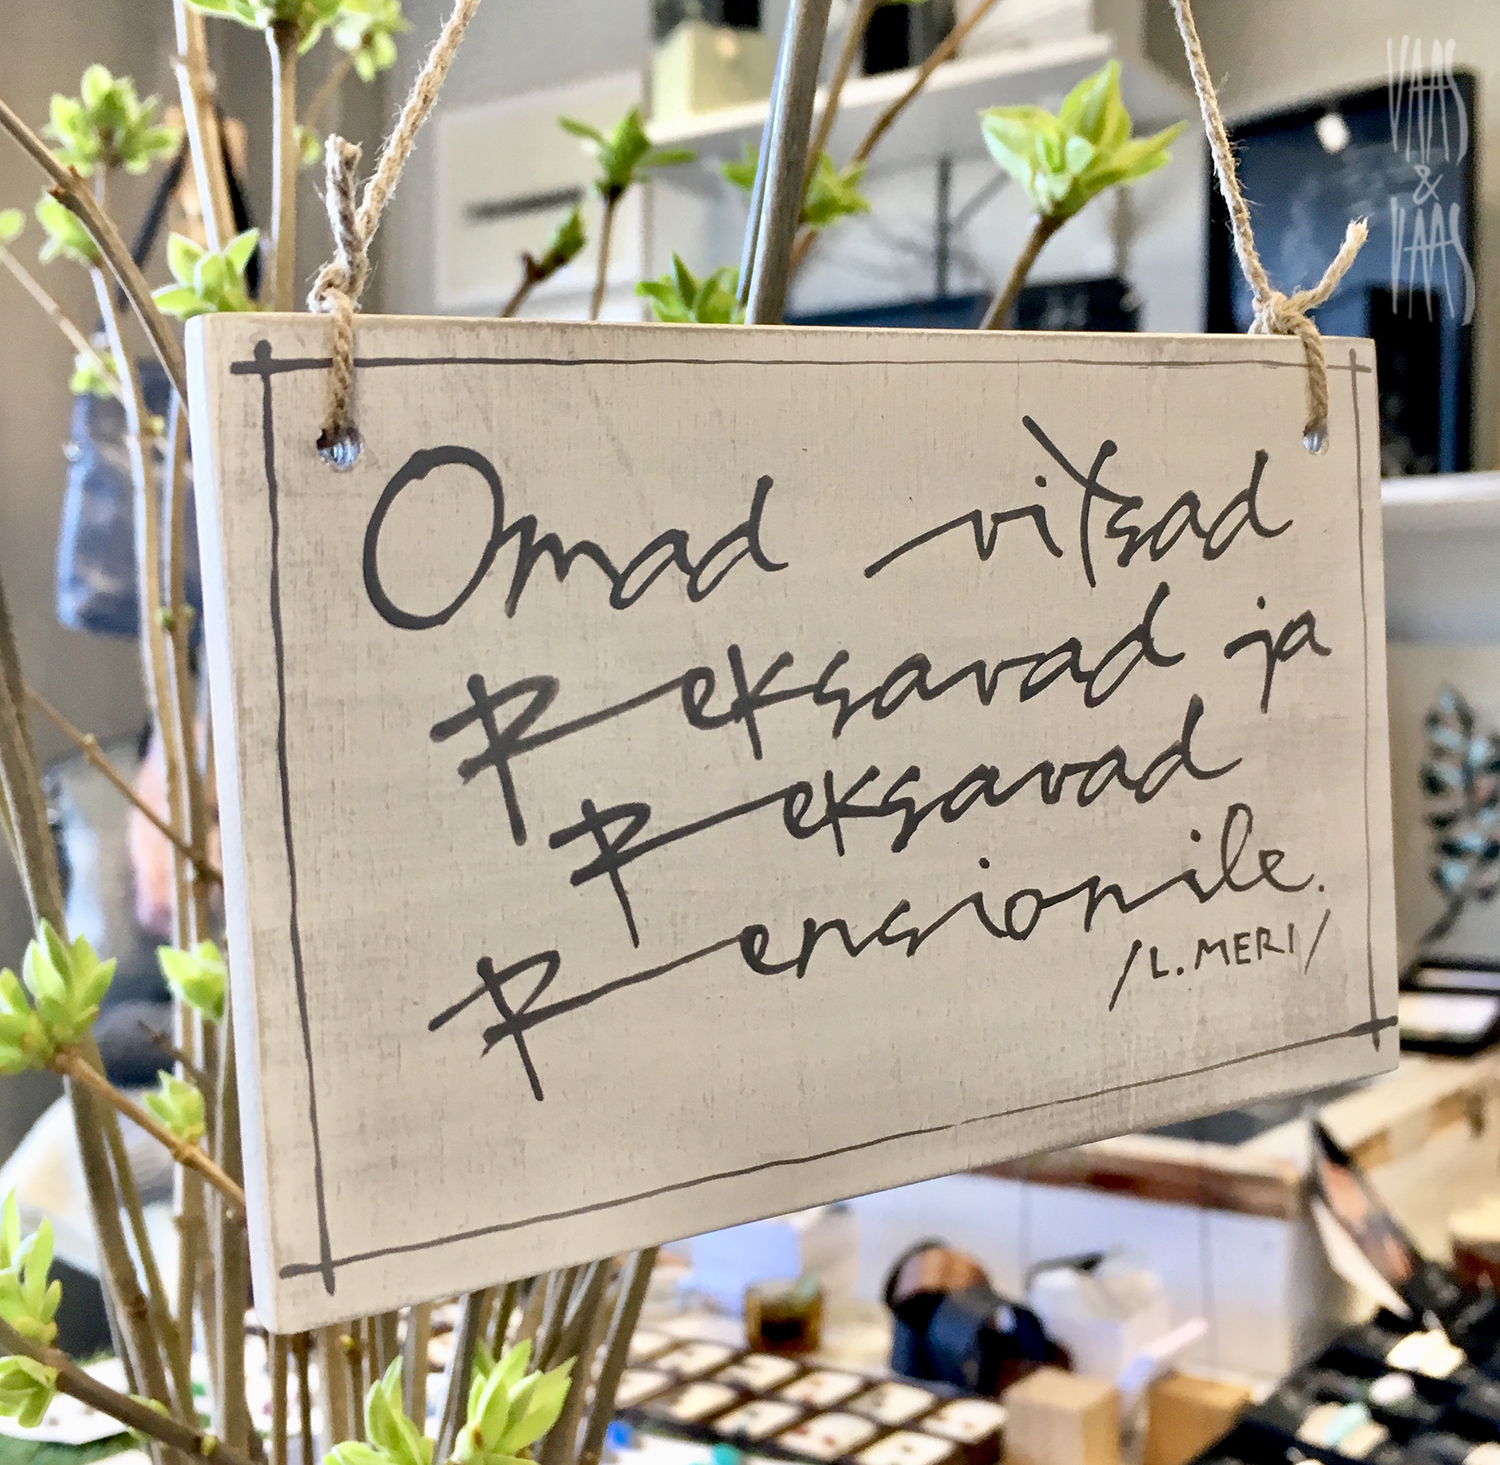 Omad vitsad
Peksavad ja
Peksavad
Pensionile.
/L. MERI/
VAAS
&
VAAS